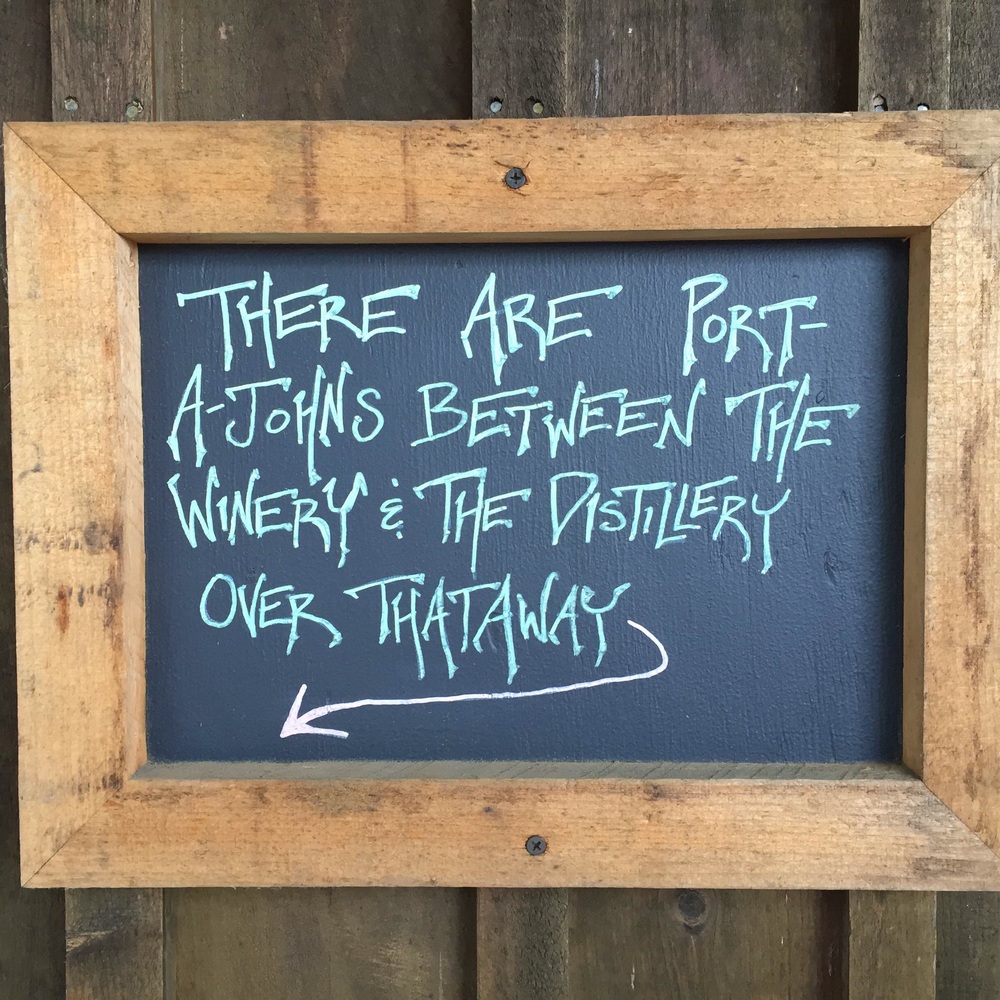 THERE ARE PORT-
A-JOHNS BETWEEN THE
WINERY & THE DISTILLERY
OVER THATAWAY